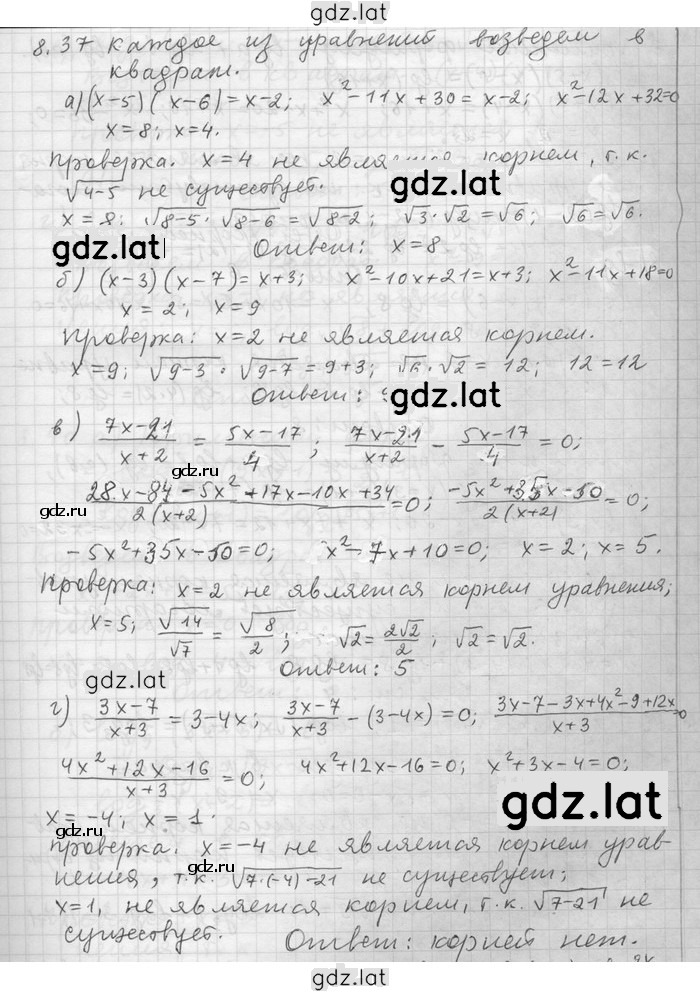 gdz.lat
8.37 каждое из уравнений возведем в
квадрат.
а) (x-5)(x-6)=x-2; x²-11x+30=x-2; x²-12x+32=0
x=8; x=4.
проверка. x=4 не корнем, т.к.
√4-5 не существует.
gdz.lat
x=8: √8-5 · √8-6 = √8-2; √3·√2=√6; √6=√6.
gdz.lat
Ответ: x=8
б) (x-3)(x-7)=x+3; x²-10x+21=x+3; x²-11x+18=0
x=2; x=9
проверка: x=2 не является корнем.
x=9; √9-3 · √9-7 = 9+3; √6·√2 = 12; 12=12
Ответ:
gdz.lat
в) 7x-21/x+2 = 5x-17/4; 7x-21/x+2 - 5x-17/4 = 0;
gdz.ru
28x-84-5x²+17x-10x+34/2(x+2) = 0; -5x²+35x-50/2(x+2) = 0;
gdz.ru
-5x²+35x-50=0; x²-7x+10=0; x=2; x=5.
проверка: x=2 не является корнем уравнения;
x=5; √14/√7 = √8/2; √2=2√2/2; √2=√2.
Ответ: 5
gdz.lat
г) 3x-7/x+3 = 3-4x; 3x-7/x+3 - (3-4x) = 0; 3x-7-3x+4x²-9+12x/x+3 =0
4x²+12x-16/x+3 = 0; 4x²+12x-16=0; x²+3x-4=0;
gdz.lat
x=-4; x=1.
gdz.ru
проверка. x=-4 не является корнем урав-
gdz.ru
нения, т.к. √7·(-4)-21 не существует;
x=1, не является корнем, т.к. √7-21 не
существует. Ответ: корней нет.
gdz.lat